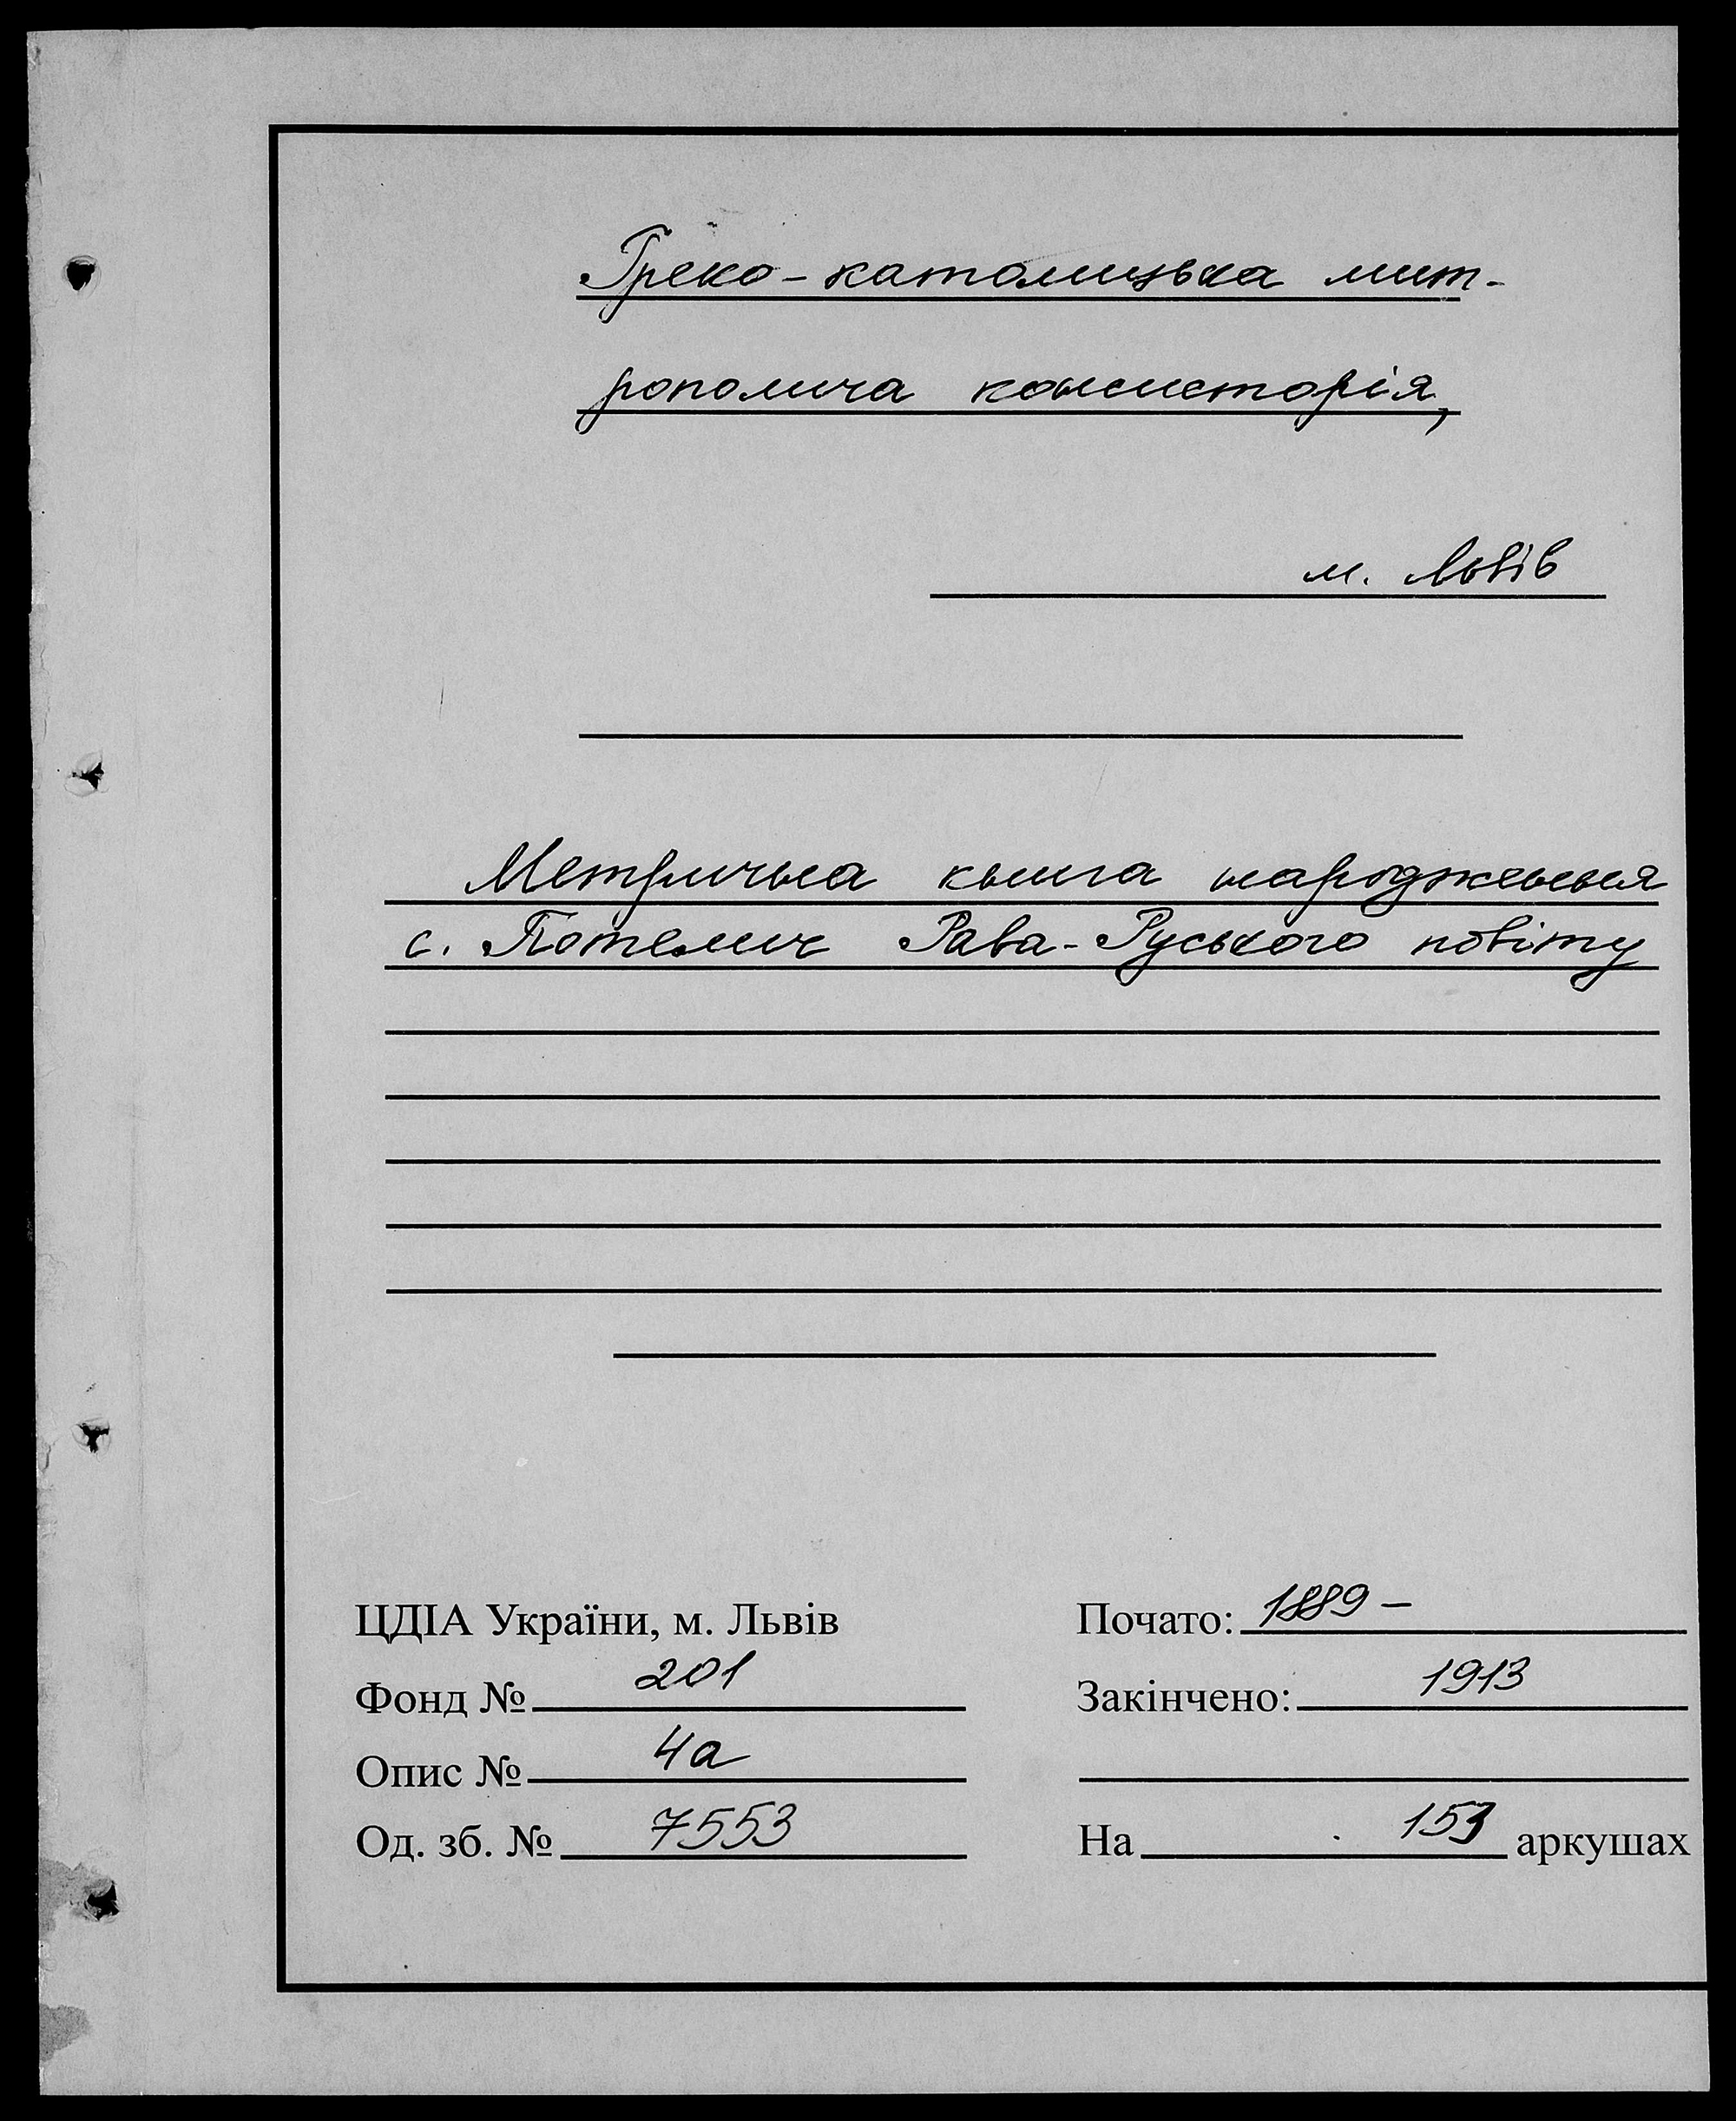 Греко-католицька мит-
рополича консисторія,
м. Львів
Метрична книга народження
с. Потелич Рава-Руського повіту
ЦДІА України, м. Львів
Почато: 1889 –
Фонд № 201
Закінчено: 1913
Опис № 4а
Од. зб. № 7553
На 153 аркушах